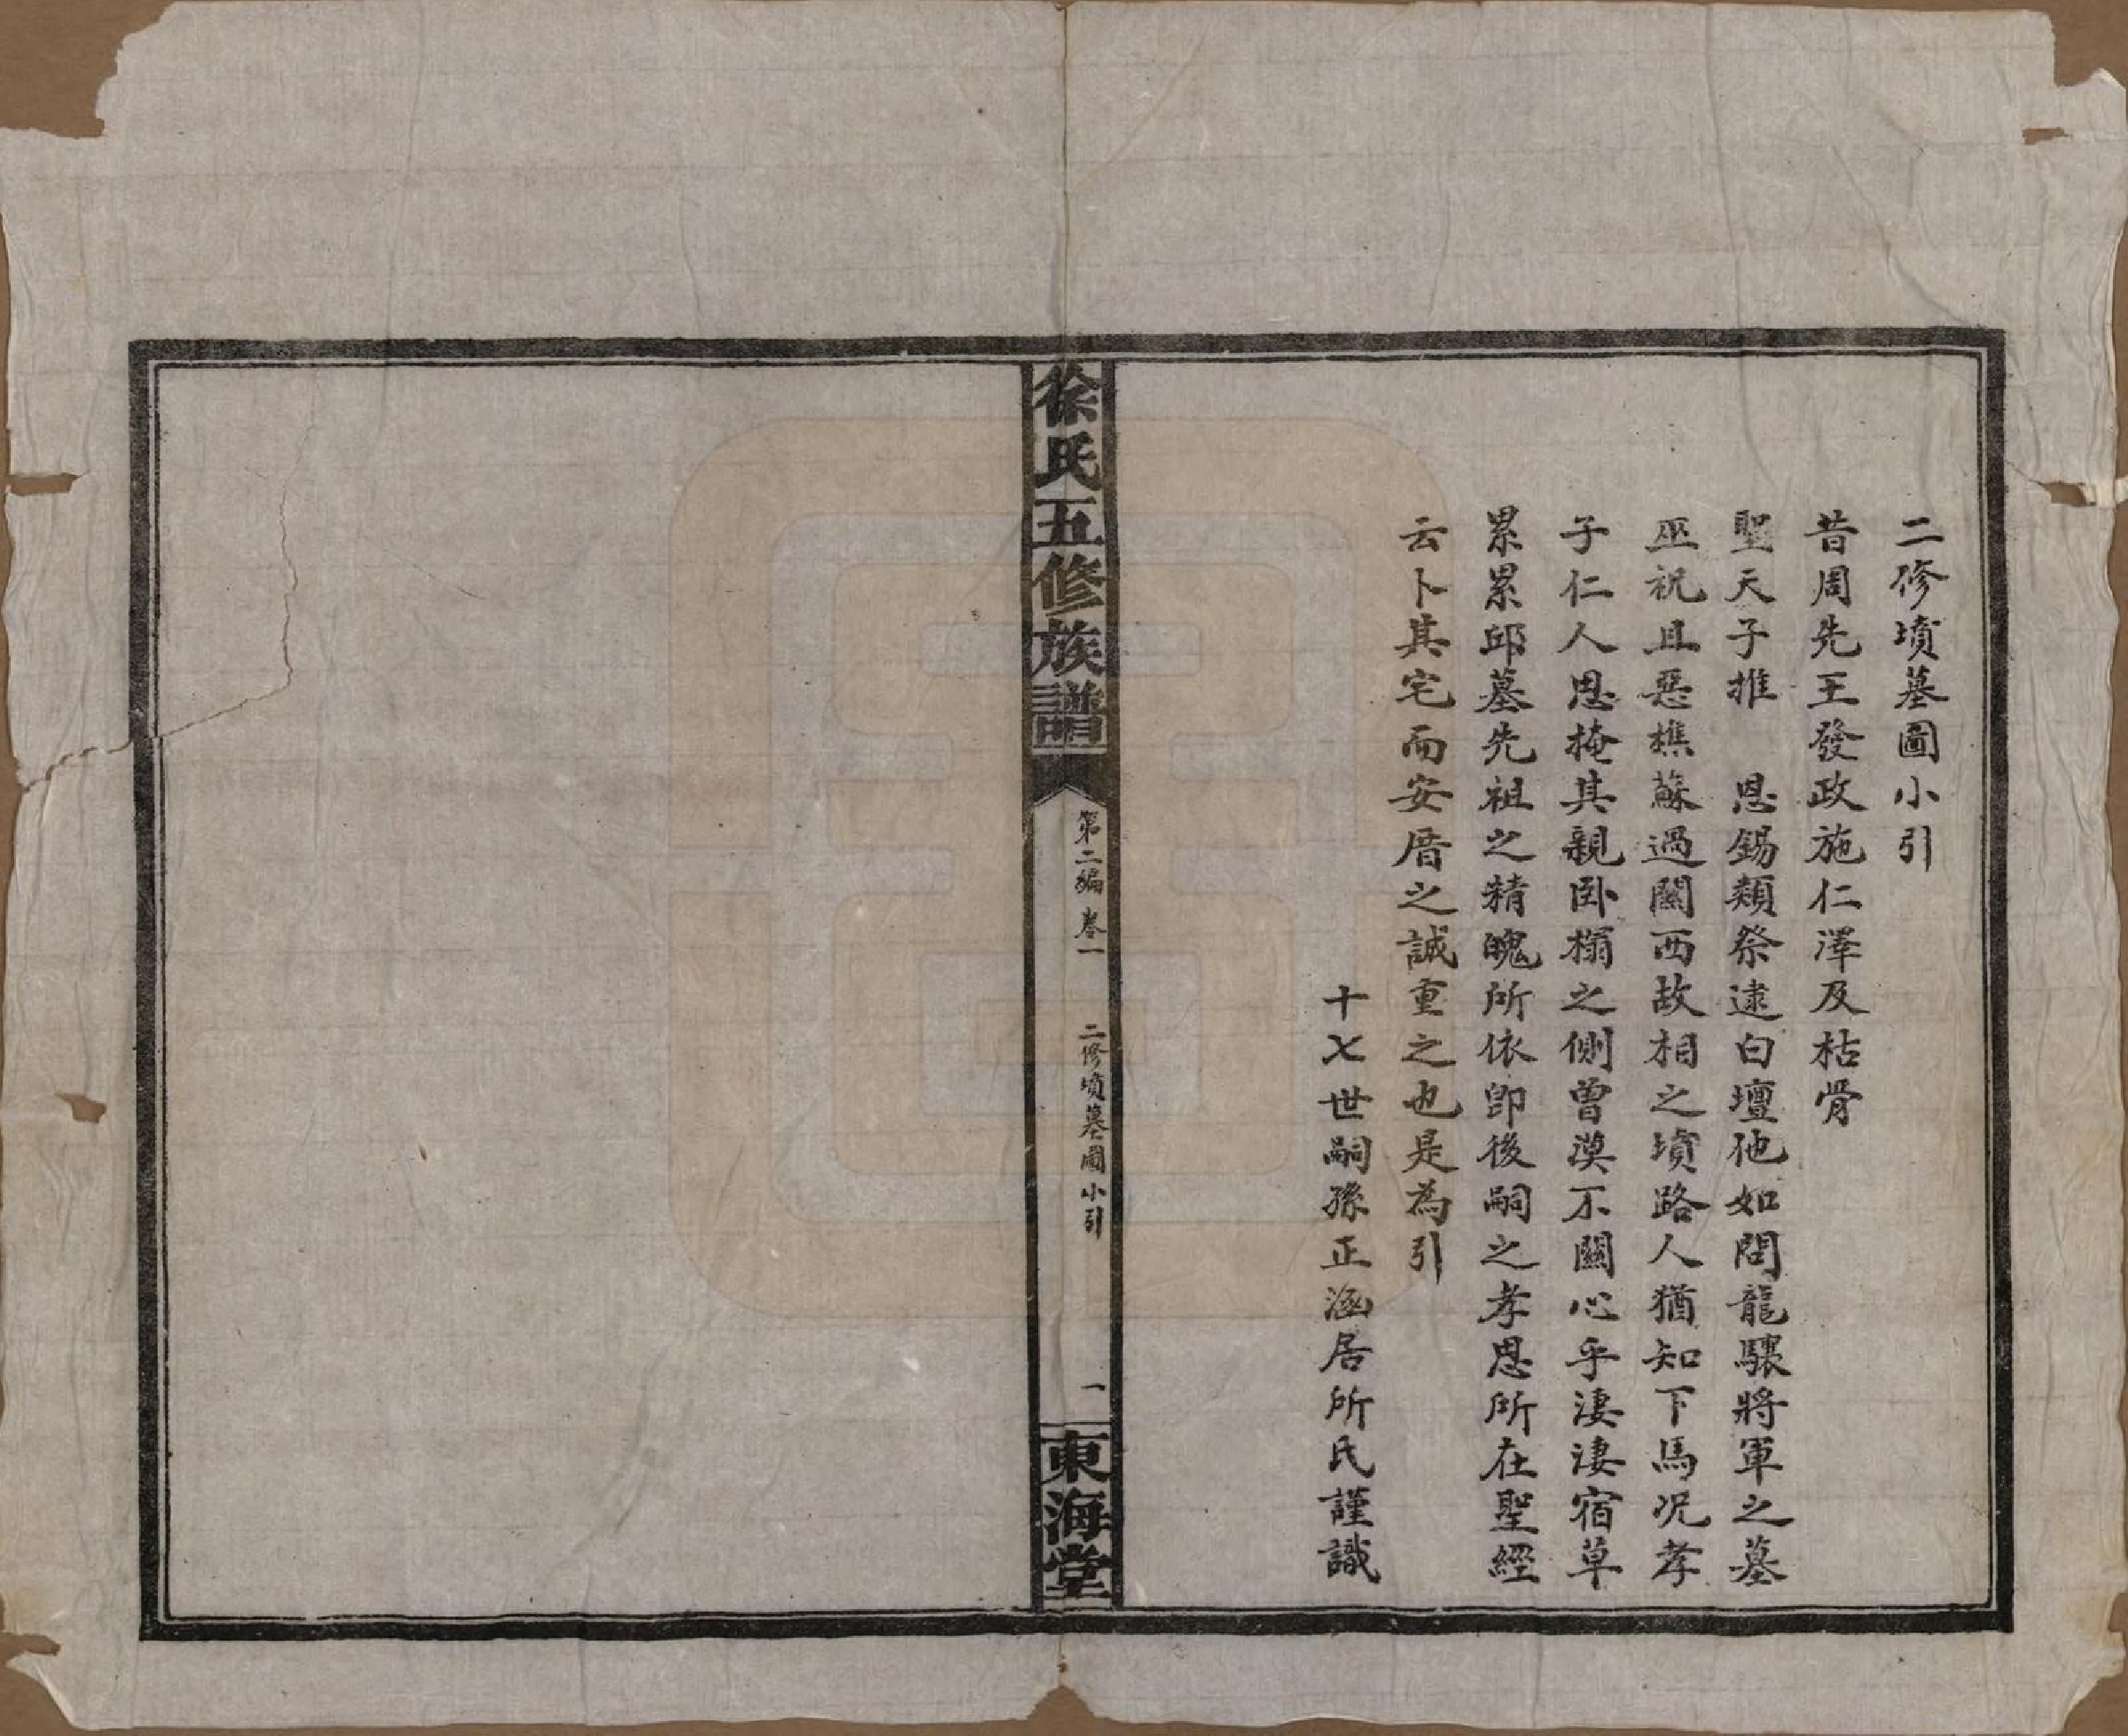 二修墳墓圖小引
昔周先王發政施仁澤及枯骨
聖天子推　恩錫類祭逮白壇他如問龍驤將軍之墓
巫祝且惡樵蘇過關西故相之墳路人猶知下馬况孝
子仁人思掩其親卧榻之側曾漠不關心乎淒淒宿草
累累邱墓先祖之精魄所依卽後嗣之孝思所在聖經
云卜其宅而安厝之誠重之也是為引
十七世嗣孫正涵居所氏謹識
徐氏五修族譜
第二編 卷一
二修墳墓圖小引
一
東海堂